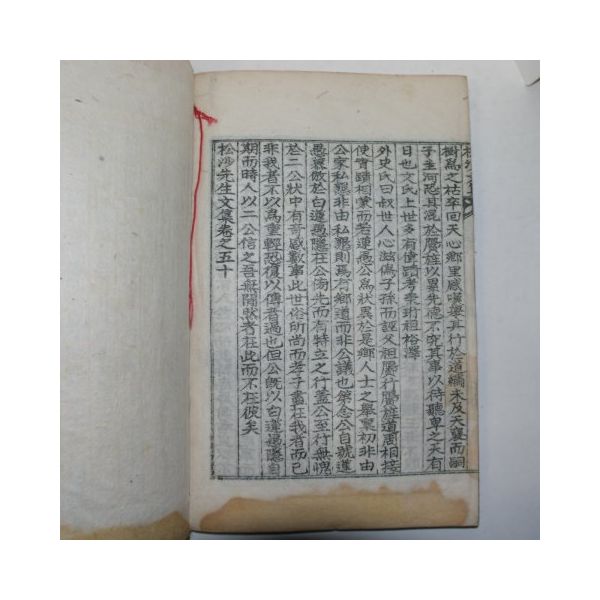 樹爲之枯卒回天心鄕里感嘆擧其行於道繡未及天襃而嗣
子圭河恐其混於贋旌以累先德不究其事以待聽卑之天有
日也文氏上世多有偉蹟考秉珩祖裕澤
外史氏曰叔世人心滋僞子孫而誣父祖贋行贋旌道周相接
使實蹟相蒙而若蓮愚公爲狀異於是鄕人士之擧稟初非由
公家私懇非由私懇則爲有鄕道而非公議也第念公自號蓮
愚稟倣於白蓮愚隱在公倚先而有特立之行蓋公至行無愧
於二公狀中有奇感數事此世俗所尙而孝子盡在我者而已
非我者不以爲重輕恐復以傳者過也但公旣以白蓮愚隱自
期而時人以二公信之吾無間然者在此而不在彼矣
松沙先生文集卷之五十